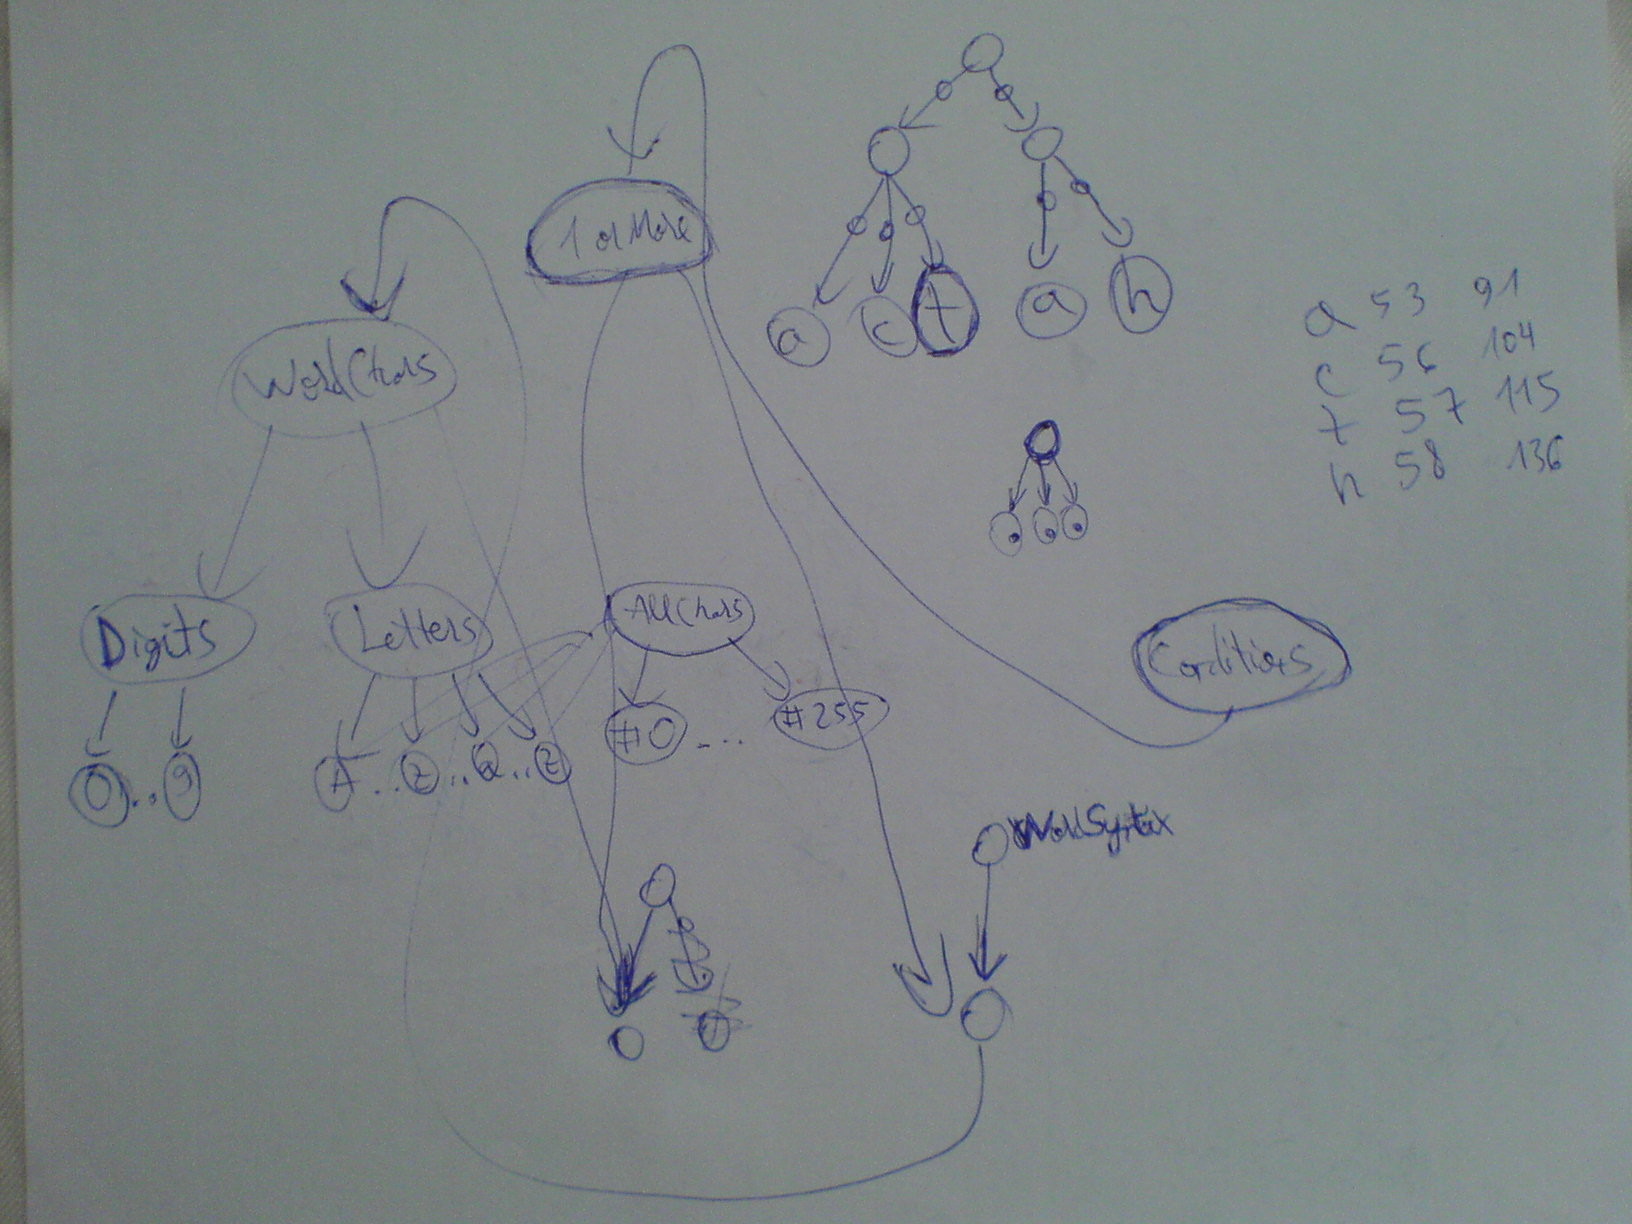 1 or More
a c t a h
a 53 91
c 56 104
t 57 115
h 58 136
WordChars
Digits Letters AllChars
Conditions
#0 ... #255
0 .. 9 A .. Z .. a .. z
WordSyntax